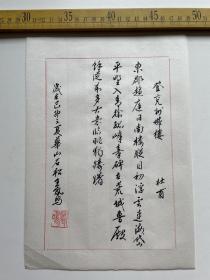 登兗州城樓
杜甫
東郡趨庭日南樓縱目初浮雲連海岱
平野入青徐孤嶂秦碑在荒城魯殿
餘從來多古意臨眺獨躊躇
歲在己卯之夏華山石松